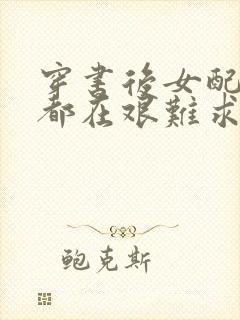 穿書後女配
都在艱難求
鲍克斯